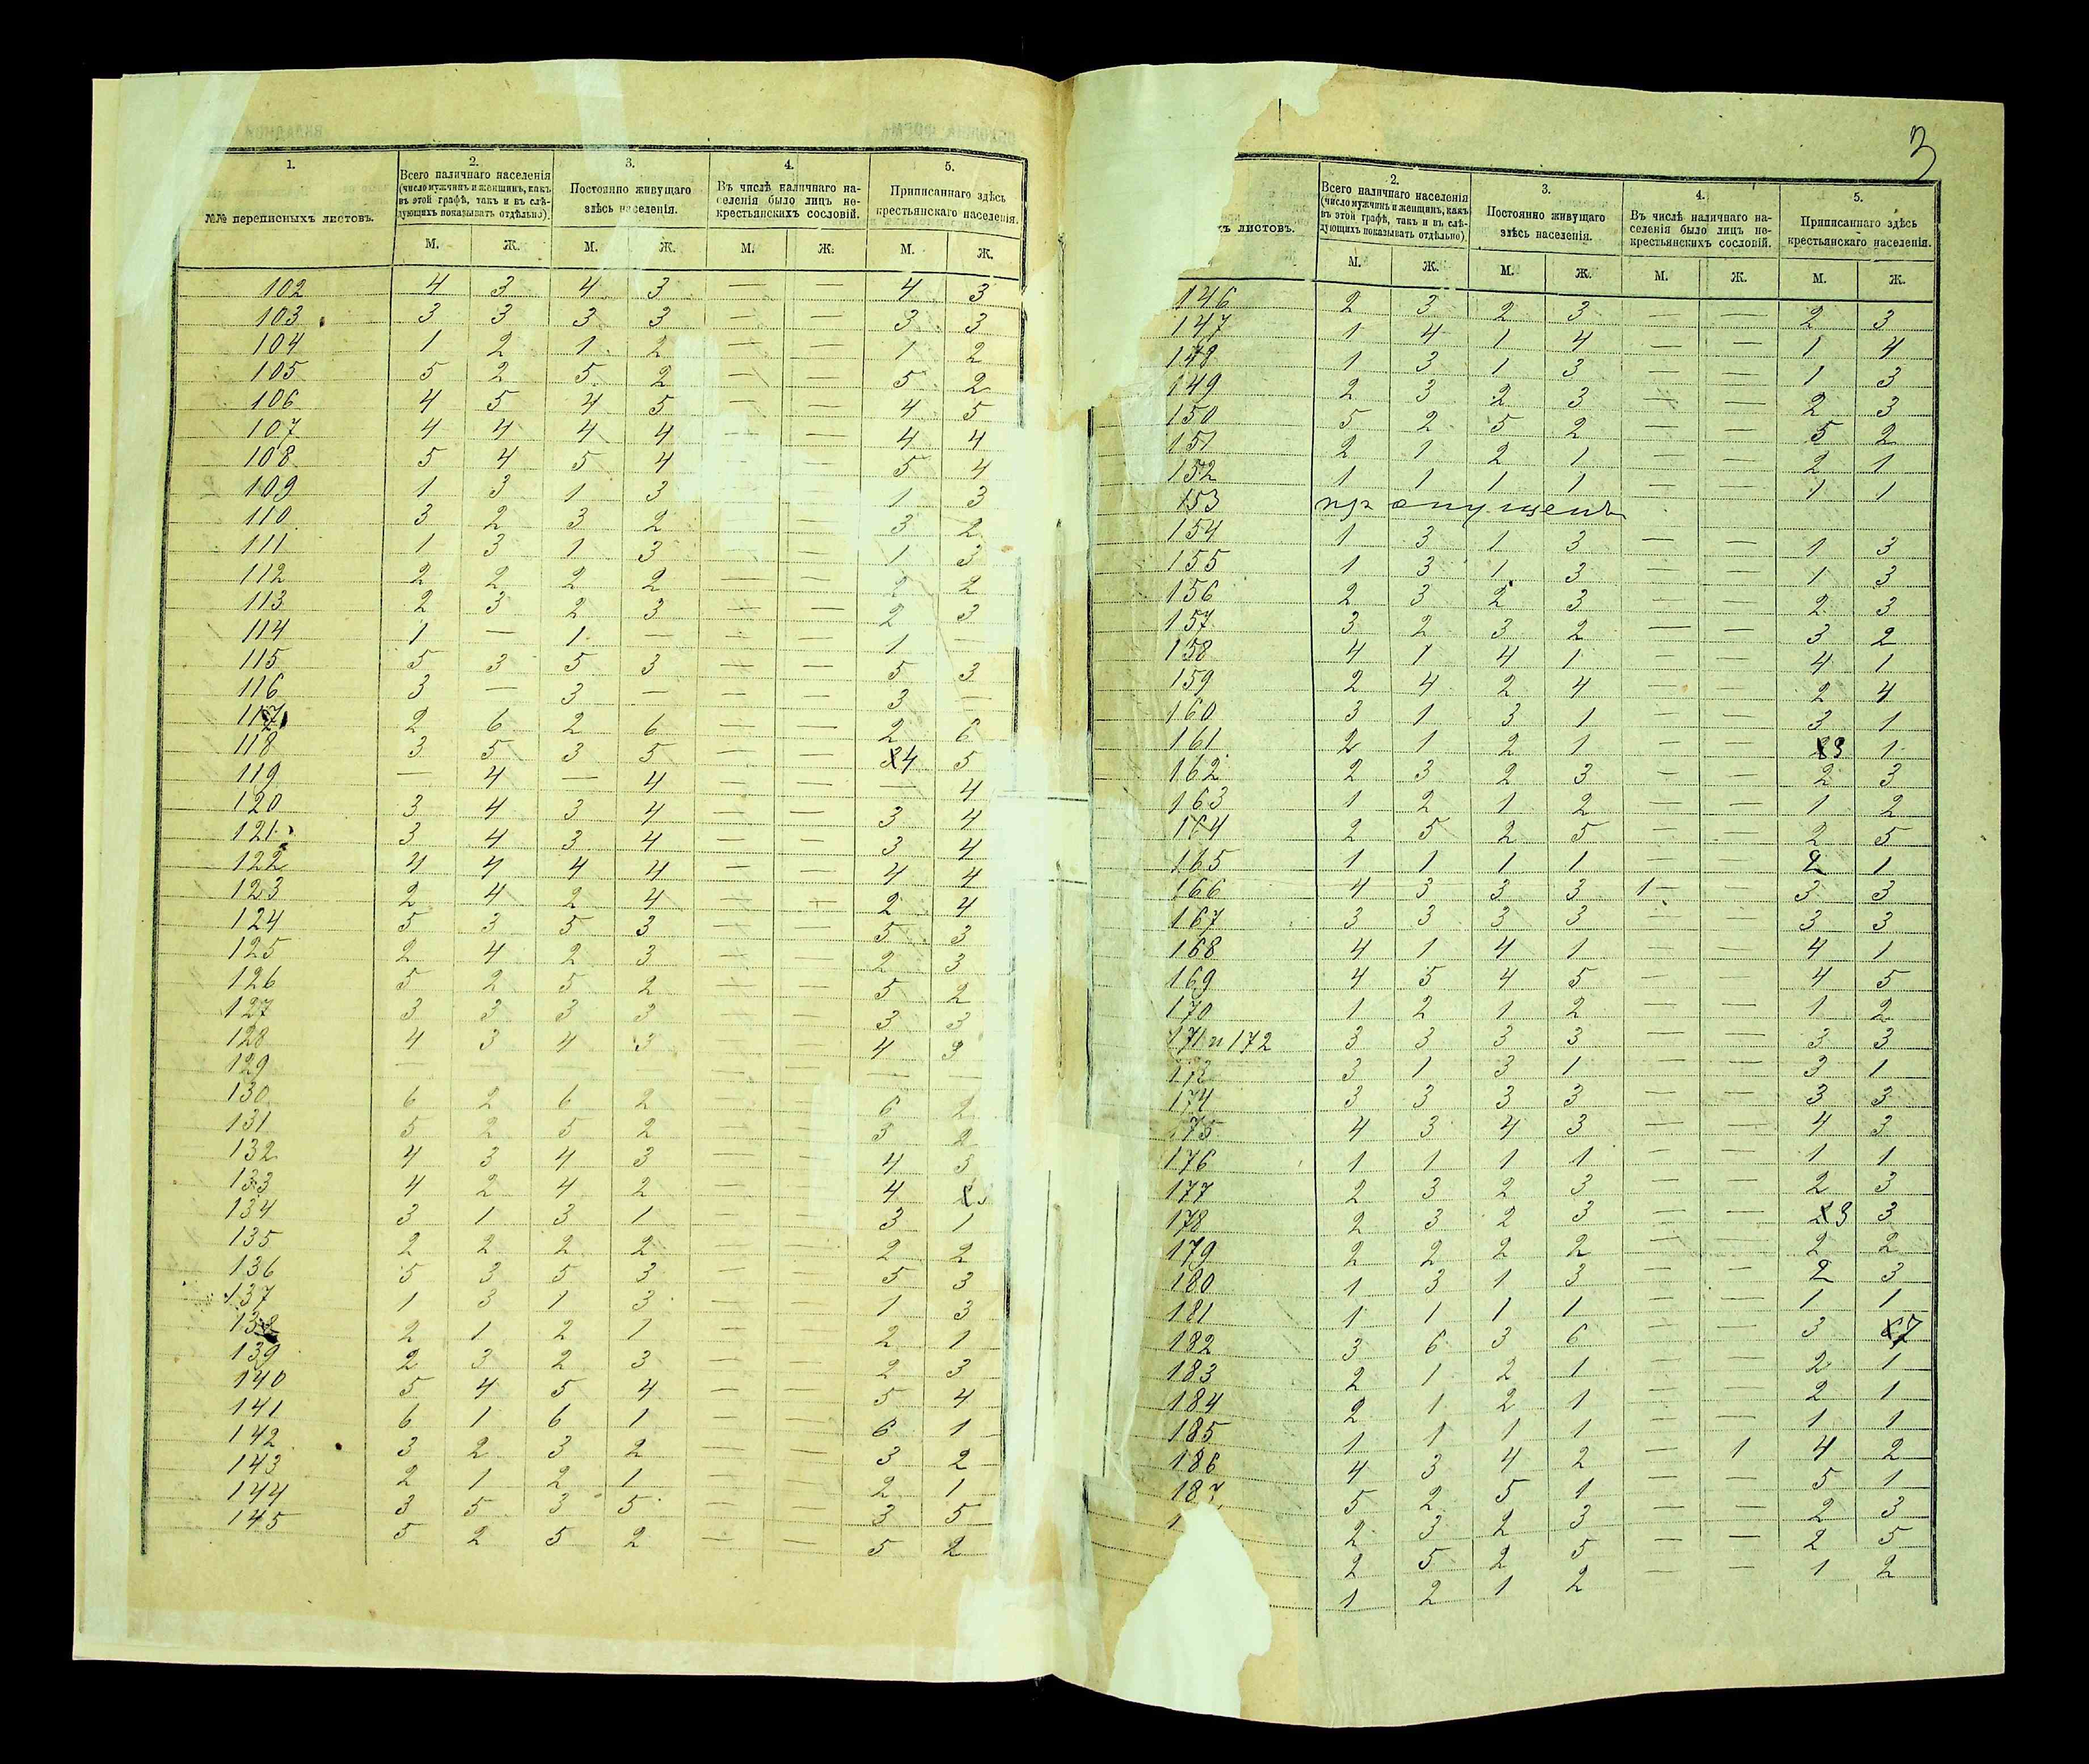 3
1.
2.
3.
4.
5.
№№ переписныхъ листовъ.
Всего наличнаго населенія
(число мужчинъ и женщинъ, какъ
въ этой графѣ, такъ и въ слѣ-
дующихъ показывать отдѣльно).
Постоянно живущаго
здѣсь населенія.
Въ числѣ наличнаго на-
селенія было лицъ не-
крестьянскихъ сословій.
Приписаннаго здѣсь
крестьянскаго населенія.
М. Ж. М. Ж. М. Ж. М. Ж.
102 4 3 4 3 — — 4 3
103 3 3 3 3 — — 3 3
104 1 2 1 2 — — 1 2
105 5 2 5 2 — — 5 2
106 4 5 4 5 — — 4 5
107 4 4 4 4 — — 4 4
108 5 4 5 4 — — 5 4
109 1 3 1 3 — — 1 3
110 3 2 3 2 — — 3 2
111 1 3 1 3 — — 1 3
112 2 2 2 2 — — 2 2
113 2 3 2 3 — — 2 3
114 1 — 1 — — — 1 —
115 5 3 5 3 — — 5 3
116 3 — 3 — — — 3 —
117 2 6 2 6 — — 2 6
118 3 5 3 5 — — 4 5
119 — 4 — 4 — — — 4
120 3 4 3 4 — — 3 4
121 3 4 3 4 — — 3 4
122 4 4 4 4 — — 4 4
123 2 4 2 4 — — 2 4
124 5 3 5 3 — — 5 3
125 2 4 2 3 — — 2 3
126 5 2 5 2 — — 5 2
127 3 3 3 3 — — 3 3
128 4 3 4 3 — — 4 3
129 — — — — — — — —
130 6 2 6 2 — — 6 2
131 5 2 5 2 — — 5 2
132 4 3 4 3 — — 4 3
133 4 2 4 2 — — 4
134 3 1 3 1 — — 3 1
135 2 2 2 2 — — 2 2
136 5 3 5 3 — — 5 3
137 1 3 1 3 — — 1 3
138 2 1 2 1 — — 2 1
139 2 3 2 3 — — 2 3
140 5 4 5 4 — — 5 4
141 6 1 6 1 — — 6 1
142 3 2 3 2 — — 3 2
143 2 1 2 1 — — 2 1
144 3 5 3 5 — — 3 5
145 5 2 5 2 — — 5 2
2.
3.
4.
5.
хъ листовъ.
Всего наличнаго населенія
(число мужчинъ и женщинъ, какъ
въ этой графѣ, такъ и въ слѣ-
дующихъ показывать отдѣльно).
Постоянно живущаго
здѣсь населенія.
Въ числѣ наличнаго на-
селенія было лицъ не-
крестьянскихъ сословій.
Приписаннаго здѣсь
крестьянскаго населенія.
М. Ж. М. Ж. М. Ж. М. Ж.
146 2 3 2 3 — — 2 3
147 1 4 1 4 — — 1 4
148 1 3 1 3 — — 1 3
149 2 3 2 3 — — 2 3
150 5 2 5 2 — — 5 2
151 2 1 2 1 — — 2 1
152 1 1 1 1 — — 1 1
153 пропущенъ
154 1 3 1 3 — — 1 3
155 1 3 1 3 — — 1 3
156 2 3 2 3 — — 2 3
157 3 2 3 2 — — 3 2
158 4 1 4 1 — — 4 1
159 2 4 2 4 — — 2 4
160 3 1 3 1 — — 3 1
161 2 1 2 1 — — 3 1
162 2 3 2 3 — — 2 3
163 1 2 1 2 — — 1 2
164 2 5 2 5 — — 2 5
165 1 1 1 1 — — 2 1
166 4 3 3 3 1 — 3 3
167 3 3 3 3 — — 3 3
168 4 1 4 1 — — 4 1
169 4 5 4 5 — — 4 5
170 1 2 1 2 — — 1 2
171 и 172 3 3 3 3 — — 3 3
173 3 1 3 1 — — 3 1
174 3 3 3 3 — — 3 3
175 4 3 4 3 — — 4 3
176 1 1 1 1 — — 1 1
177 2 3 2 3 — — 2 3
178 2 3 2 3 — — 3 3
179 2 2 2 2 — — 2 2
180 1 3 1 3 — — 2 3
181 1 1 1 1 — — 1 1
182 3 6 3 6 — — 3 7
183 2 1 2 1 — — 2 1
184 2 1 2 1 — — 2 1
185 1 1 1 1 — — 1 1
186 4 3 4 2 — 1 4 2
187 5 2 5 1 — — 5 1
1 2 3 2 3 — — 2 3
2 5 2 5 — — 2 5
1 2 1 2 — — 1 2